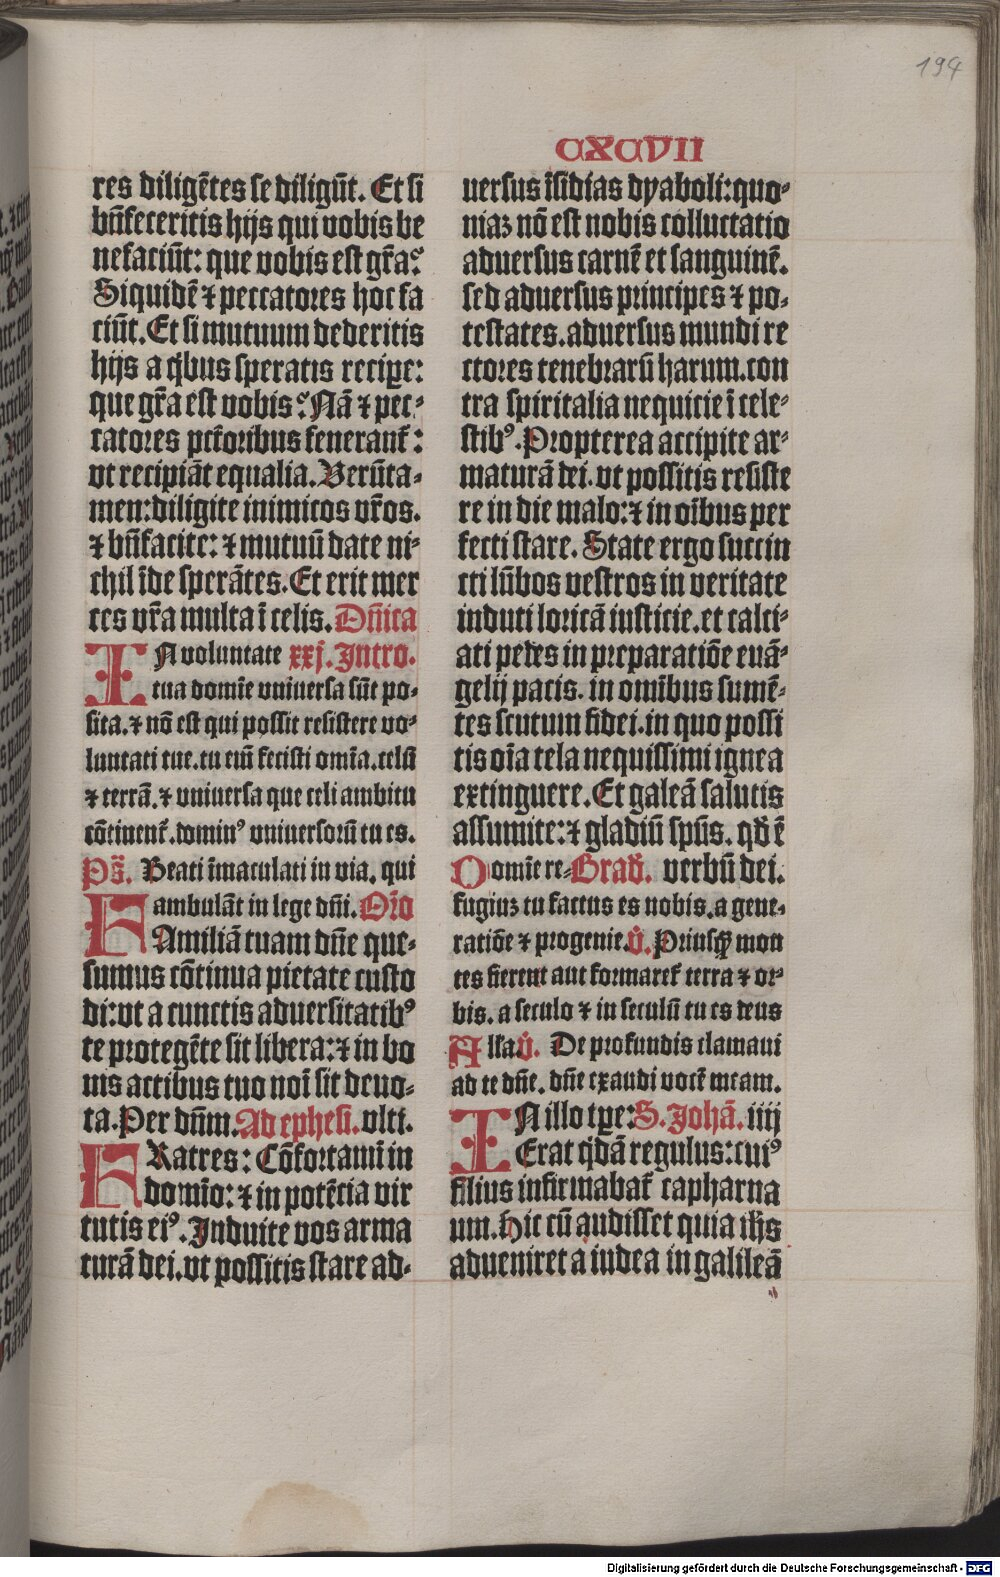 194
CXCVII
res diligētes se diligūt. Et si
bn̄feceritis hijs qui vobis be
nefaciūt: que vobis est gr̄a?
Siquidē ⁊ peccatores hoc fa
ciūt. Et si mutuum dederitis
hijs a q̇bus speratis recipe:
que gr̄a est vobis? Nā ⁊ pec-
catores pctōribus feneranť:
vt recipiāt equalia. Verūta-
men: diligite inimicos vr̄os.
⁊ bn̄facite: ⁊ mutuū date ni-
chil īde sperātes. Et erit mer
ces vr̄a multa ī celis. Dn̄ica
IN voluntate xxj. Intro.
tua domīe vniuersa sūt po-
sita. ⁊ nō est qui possit resistere vo-
luntati tue. tu eni̅ fecisti omīa. celū
⁊ terrā. ⁊ vniuersa que celi ambitu
cōtinenť. dominꝰ vniuersorū tu es.
Ps̄. Beati īmaculati in via. qui
ambulāt in lege dn̄i. Or̄o
FAmiliā tuam dn̄e que-
sumus cōtinua pietate custo
di: vt a cunctis aduersitatibꝰ
te protegēte sit libera: ⁊ in bo
nis actibus tuo noi̅ sit deuo-
ta. Per dn̄m. Ad ephesi. vlti.
FRatres: Cōfortami̅ in
domīo: ⁊ in potētia vir
tutis eiꝰ. Induite vos arma
turā dei. vt possitis stare ad-
uersus īsidias dyaboli: quo-
niaꝫ nō est nobis colluctatio
aduersus carnē et sanguinē.
sed aduersus principes ⁊ po-
testates. aduersus mundi re
ctores tenebrarū harum. con
tra spiritalia nequicie ī cele-
stibꝰ. Propterea accipite ar-
maturā dei. vt possitis resiste
re in die malo: ⁊ in oi̅bus per
fecti stare. State ergo succin
cti lūbos vestros in veritate
induti loricā iusticie. et calci-
ati pedes in preparatiōe euā-
gelij pacis. in omībus sumē-
tes scutum fidei. in quo possi
tis oi̅a tela nequissimi ignea
extinguere. Et galeā salutis
assumite: ⁊ gladiū sp̄us. qď ē
Domīe re- Graď. verbū dei.
fugiuꝫ tu factus es nobis. a gene-
ratiōe ⁊ progenie. V̇. Priusq̄ mon
tes fierent aut formareť terra ⁊ or-
bis. a seculo ⁊ in seculū tu es deus
All̄a. V̇. De profundis clamaui
ad te dn̄e. dn̄e exaudi vocē meam.
IN illo tp̄e: S. Johā. iiij
Erat q̇dā regulus: cuiꝰ
filius infirmabať capharna
um. Hic cū audisset quia ih̄s
adueniret a iudea in galileā
Digitalisierung gefördert durch die Deutsche Forschungsgemeinschaft - DFG